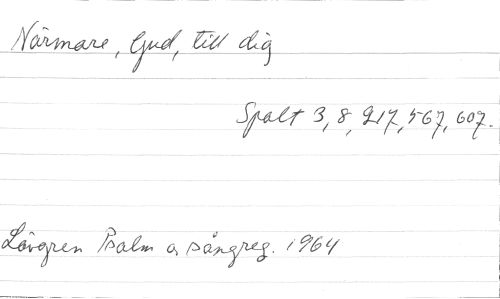 Närmare, Gud, till dig
Spalt 3, 8, 217, 567, 607.
Lövgren Psalm o sångreg. 1964